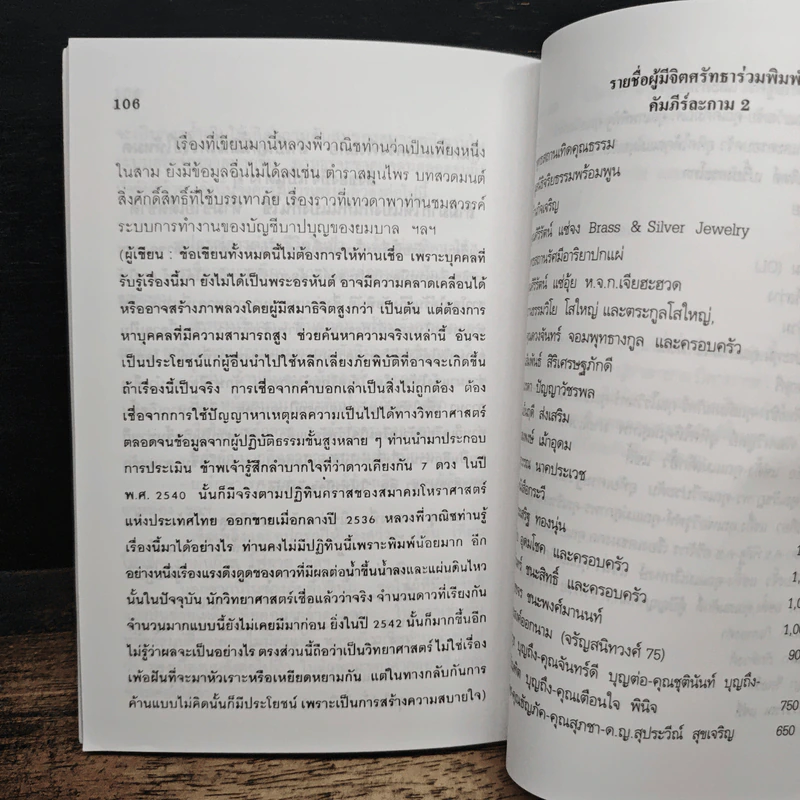 106
เรื่องที่เขียนมานี้หลวงพี่วาณิชท่านว่าเป็นเพียงหนึ่ง
ในสาม ยังมีข้อมูลอื่นไม่ได้ลงเช่น ตำราสมุนไพร บทสวดมนต์
สิ่งศักดิ์สิทธิ์ที่ใช้บรรเทาภัย เรื่องราวที่เทวดาพาท่านชมสวรรค์
ระบบการทำงานของบัญชีบาปบุญของยมบาล ฯลฯ
(ผู้เขียน : ข้อเขียนทั้งหมดนี้ไม่ต้องการให้ท่านเชื่อ เพราะบุคคลที่
รับรู้เรื่องนี้มา ยังไม่ได้เป็นพระอรหันต์ อาจมีความคลาดเคลื่อนได้
หรืออาจสร้างภาพลวงโดยผู้มีสมาธิจิตสูงกว่า เป็นต้น แต่ต้องการ
หาบุคคลที่มีความสามารถสูง ช่วยค้นหาความจริงเหล่านี้ อันจะ
เป็นประโยชน์แก่ผู้อื่นนำไปใช้หลีกเลี่ยงภัยพิบัติที่อาจจะเกิดขึ้น
ถ้าเรื่องนี้เป็นจริง การเชื่อจากคำบอกเล่าเป็นสิ่งไม่ถูกต้อง ต้อง
เชื่อจากการใช้ปัญญาหาเหตุผลความเป็นไปได้ทางวิทยาศาสตร์
ตลอดจนข้อมูลจากผู้ปฏิบัติธรรมขั้นสูงหลาย ๆ ท่านนำมาประกอบ
การประเมิน ข้าพเจ้ารู้สึกลำบากใจที่ว่าดาวเคียงกัน 7 ดวง ในปี
พ.ศ. 2540 นั้นก็มีจริงตามปฏิทินคราสของสมาคมโหราศาสตร์
แห่งประเทศไทย ออกขายเมื่อกลางปี 2536 หลวงพี่วาณิชท่านรู้
เรื่องนี้มาได้อย่างไร ท่านคงไม่มีปฏิทินนี้เพราะพิมพ์น้อยมาก อีก
อย่างหนึ่งเรื่องแรงดึงดูดของดาวที่มีผลต่อน้ำขึ้นน้ำลงและแผ่นดินไหว
นั้นในปัจจุบัน นักวิทยาศาสตร์เชื่อแล้วว่าจริง จำนวนดาวที่เรียงกัน
จำนวนมากแบบนี้ยังไม่เคยมีมาก่อน ยิ่งในปี 2542 นั้นก็มากขึ้นอีก
ไม่รู้ว่าผลจะเป็นอย่างไร ตรงส่วนนี้ถือว่าเป็นวิทยาศาสตร์ ไม่ใช่เรื่อง
เพ้อฝันที่จะมาหัวเราะหรือเหยียดหยามกัน แต่ในทางกลับกันการ
ค้านแบบไม่คิดนั้นก็มีประโยชน์ เพราะเป็นการสร้างความสบายใจ)
รายชื่อผู้มีจิตศรัทธาร่วมพิมพ์
คัมภีร์ละกาม 2
สถานเทิดคุณธรรม
จริยธรรมพร้อมพูน
เจริญ
ศิริรัตน์ แซ่จง Brass & Silver Jewelry
สถานรัศมีอาริยาปกแผ่
ศิริรัตน์ แซ่อุ้ย ห.จ.ก.เจียฮะฮวด
ธรรมวิโย โสใหญ่ และตระกูลโสใหญ่,
ดวงจันทร์ จอมพุทธางกูล และครอบครัว
สัมพันธ์ สิริเศรษฐภักดี
ปัญญาวัชรพล
ส่งเสริม
เม้าอุดม
นาคประเวช
ทองนุ่น
อุดมโชค และครอบครัว
ชนะสิทธิ์ และครอบครัว
ชนะพงศ์มานนท์ 1,0
ออกนาม (จรัญสนิทวงศ์ 75) 1,00
บุญถึง-คุณจันทร์ดี บุญต่อ-คุณชุตินันท์ บุญถึง- 90
บุญถึง-คุณเตือนใจ พินิจ 750
ธัญภัค-คุณสุภชา-ด.ญ.สุประวีณ์ สุขเจริญ 650